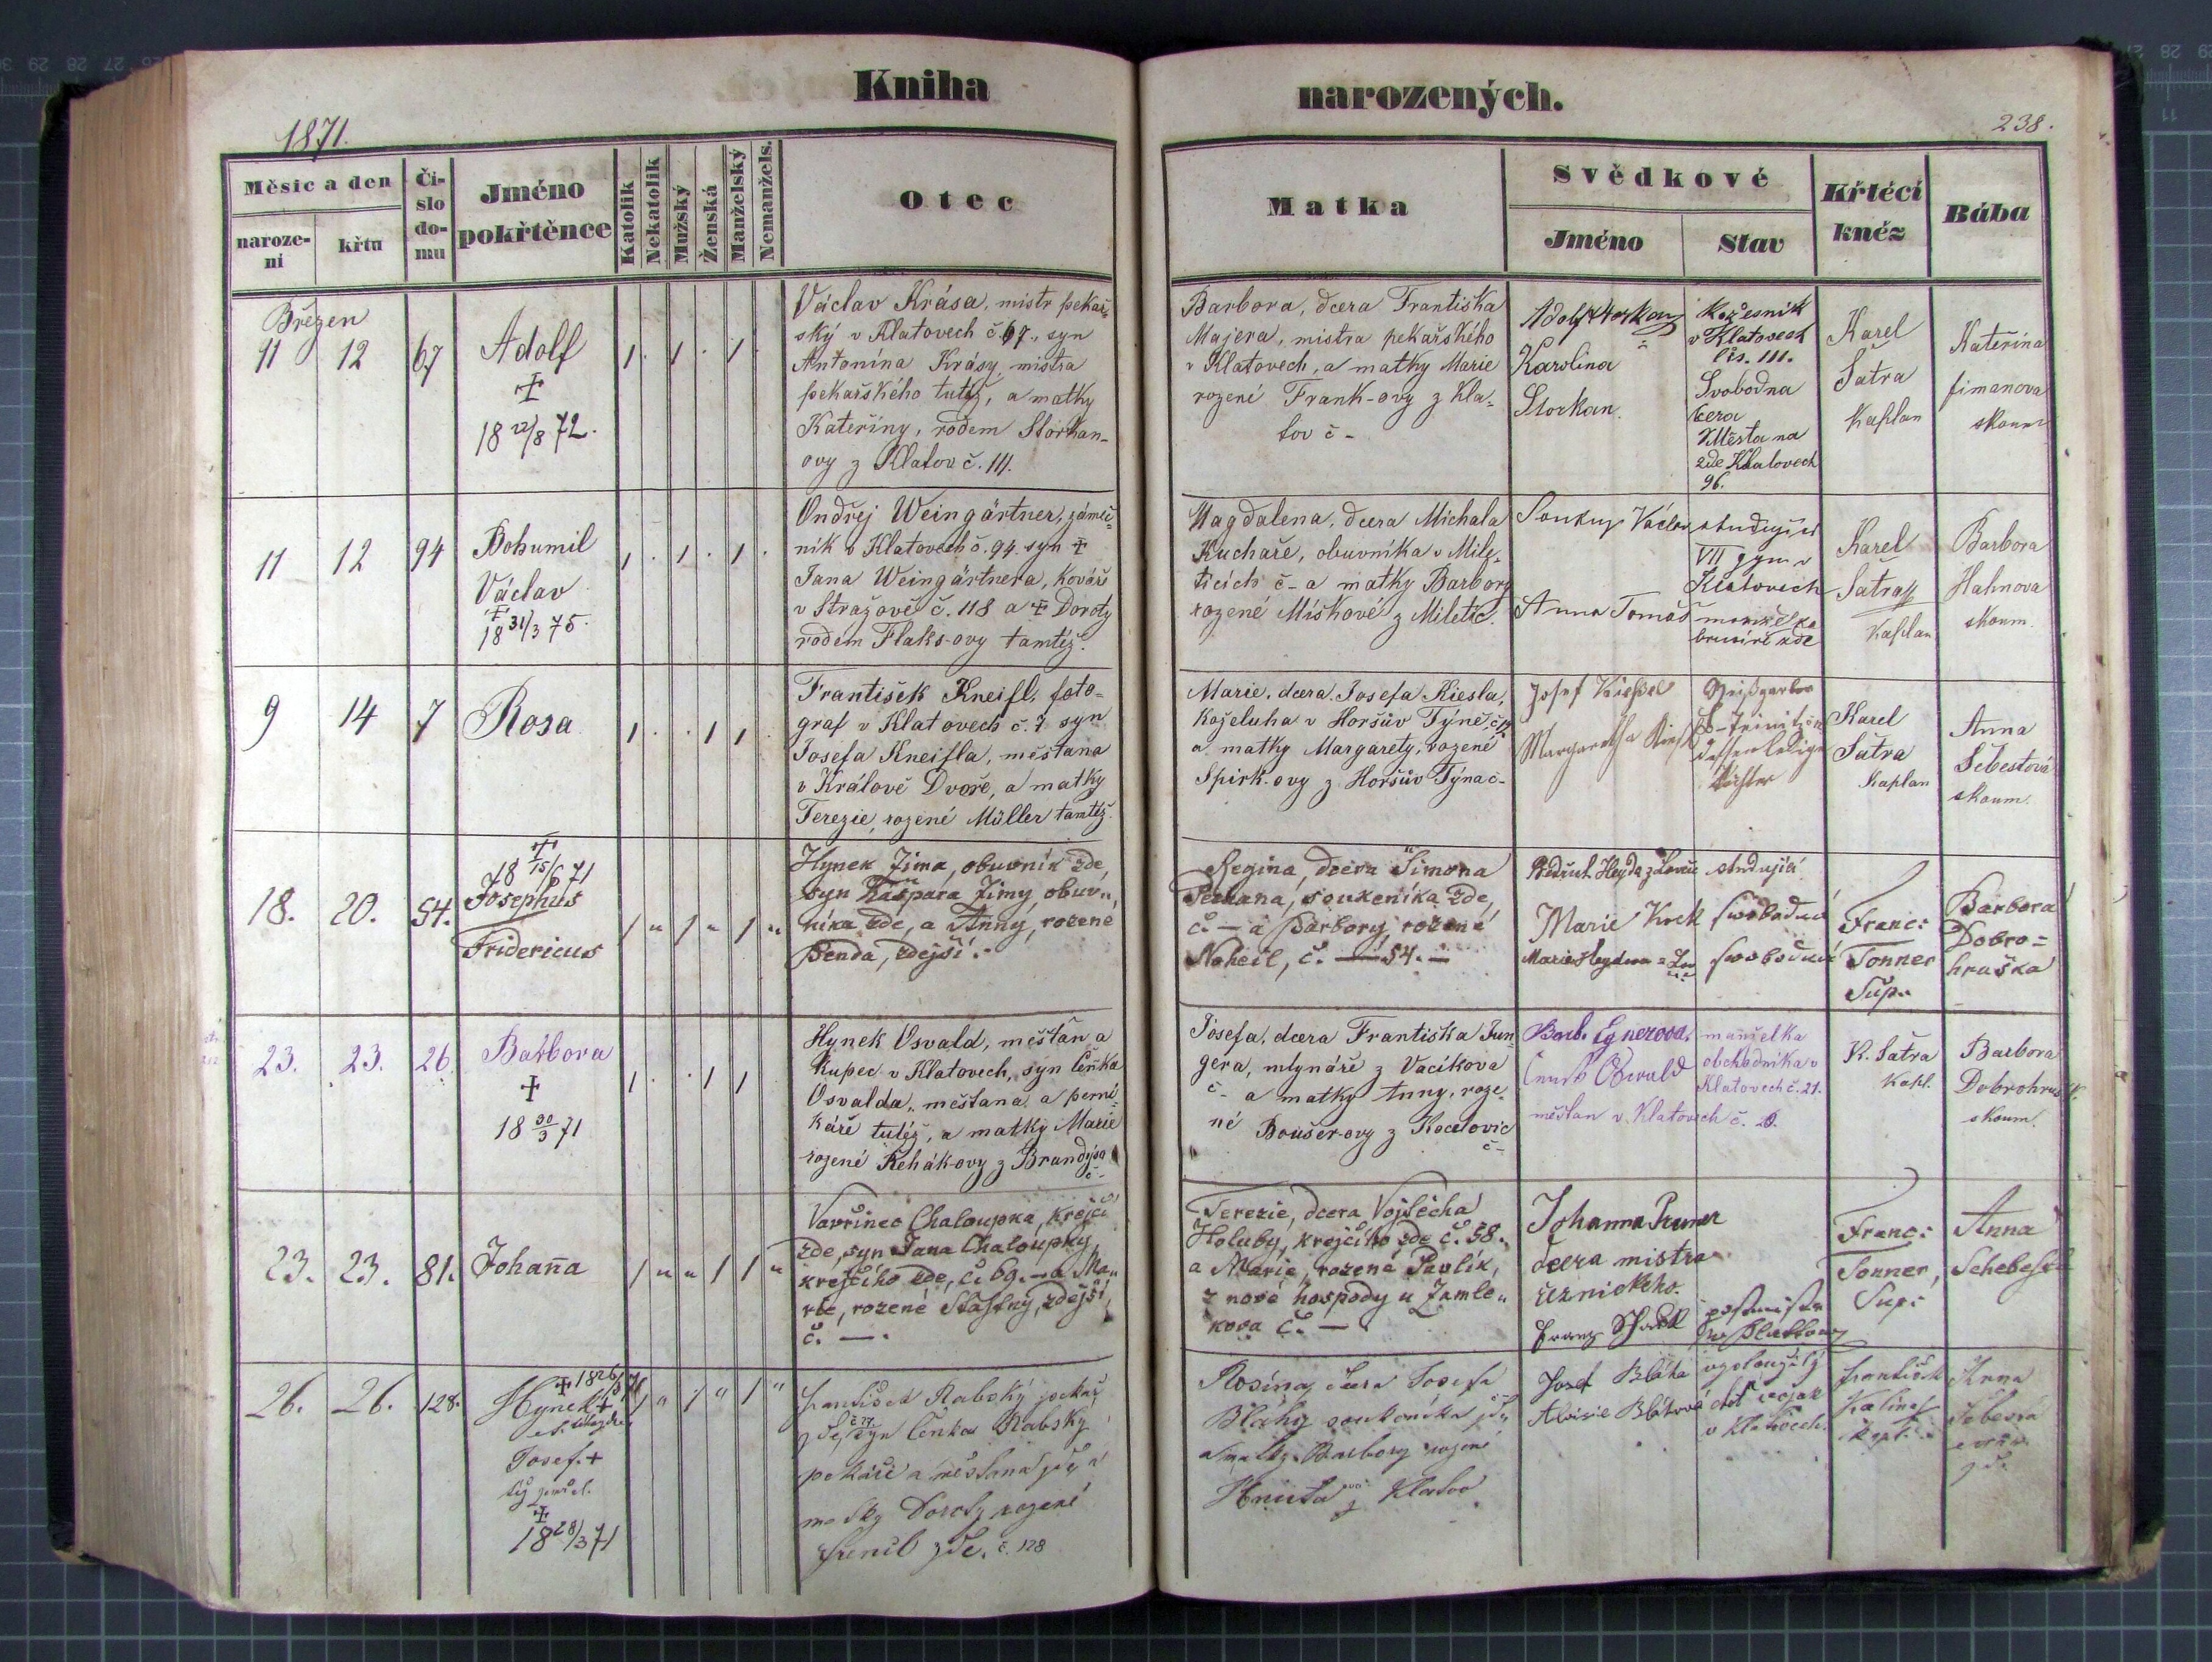 Kniha
narozených.
1871.
238.
Měsíc a den
naroze-
ní
křtu
Čí-
slo
do-
mu
Jméno
pokřtěnce
Katolík
Nekatolík
Mužský
Ženská
Manželský
Nemanžels.
Otec
Matka
Svědkové
Jméno
Stav
Křtěcí
kněz
Bába
Březen
11 12 67
Adolf
+
18 22/8 72.
1 . 1 . 1
Václav Krása, mistr pekař-
ský v Klatovech č. 67., syn
Antonína Krásy, mistra
pekařského tutéž, a matky
Kateřiny, rodem Storkan-
ovy z Klatov č. 111.
Barbora, dcera Františka
Majera, mistra pekařského
v Klatovech, a matky Marie
rozené Frank-ovy z Kla-
tov č -
Adolf Storkan
Karolina
Storkan.
v Klatovech
čís. 111.
Svobodna
Města na
zde Klatovech
96.
Karel
Šatra
Kaplan
Kateřina
skoum
11 12 94
Bohumil
Václav
+
18 31/3 75.
1 . 1 . 1 .
Ondřej Weingärtner, zámeč-
ník v Klatovech č. 94. syn +
Jana Weingärtnera, kováře
v Strážově č. 118 a + Doroty
rodem Flaks-ovy tamtéž.
Magdalena, dcera Michala
Kuchaře, obuvníka v Mile-
ticích č - a matky Barbory
rozené Míškové z Miletic.
Soukup Václav
Anna Tomáš
studující
VII gym v
Klatovech
manželka
zde
Karel
Šatra
Kaplan
Barbora
Hahnova
skoum.
9 14 7
Rosa
1 . . 1 1
František Kneifl, foto-
graf v Klatovech č. 7 syn
Josefa Kneifla, měšťana
v Králově Dvoře, a matky
Terezie, rozené Müller tamtéž.
Marie, dcera Josefa Kiesla,
koželuha v Horšův Týně,
a matky Margarety, rozené
Spirk-ovy z Horšův Týna č -
Josef
Margaretha
Weißgärber
ledige
Tochter
Karel
Šatra
Kaplan
Anna
Šebestová
skoum.
18. 20. 54.
+
18 15/6 71
Josephus
Fridericus
1 " 1 " 1 "
Hynek Zima, obuvník zde,
syn Kašpara Zimy, obuv-
níka zde, a Anny, rozené
Benda, zdejší. -
Regina, dcera Šimona
soukeníka zde,
č. — a Barbory, rozené
č. — 54. —
Bedřich Hejda
Marie Kock
studující
svobodná
svobodná
Franc:
Tonner
Sup.
Barbora
Dobro=
hruška
23. 23. 26
Barbora
+
18 30/3 71
1 . . 1 1
Hynek Osvald, měšťan a
kupec v Klatovech, syn Čeňka
Osvalda, měšťana a perní-
káře tutéž, a matky Marie
rozené Řehák-ovy z Brandýsa
č -
Josefa, dcera Františka Jun-
gera, mlynáře z Vacíkova
č - a matky Anny, roze-
né Boušer-ovy z Kocelovic
č -
Barb. Egnerova.
Oswald
měšťan v Klatovech č.
manželka
obchodníka v
Klatovech č. 21.
K. Šatra
Kapl.
Barbora
Dobrohrušk.
skoum.
23. 23. 81.
Johaña
1 " " 1 1 "
Vavřinec Chaloupka, krejčí
zde, syn Jana Chaloupky,
krejčího zde, č. 69. — a Ma-
rie, rozené Stastny, zdejší,
č. — .
Terezie, dcera Vojtěcha
Holuby, krejčího zde č. 58.
a Marie, rozené Pavlík,
z nové hospody u Zamle-
kova č. —
Johanna
dcera mistra
řeznickeho.
Franz
postmistr
Franc:
Tonner,
Sup:
Anna
26. 26. 128.
Hynek +
Josef. +
+
18 28/3 71
1 " 1 " 1 "
František Rabský pekař
zde, syn Čeňka Rabsky
pekaře a měšťana zde a
matky Doroty rozené
zde. č. 128
Rosina dcera Josefa
Bláhy soukeníka zde
a matky Barbory rozené
z Klatov
Josef Bláha
Aloisie Bláhová
vysloužilý
vojak
v Klatovech.
František
Kalina
kapl.
Anna
zde